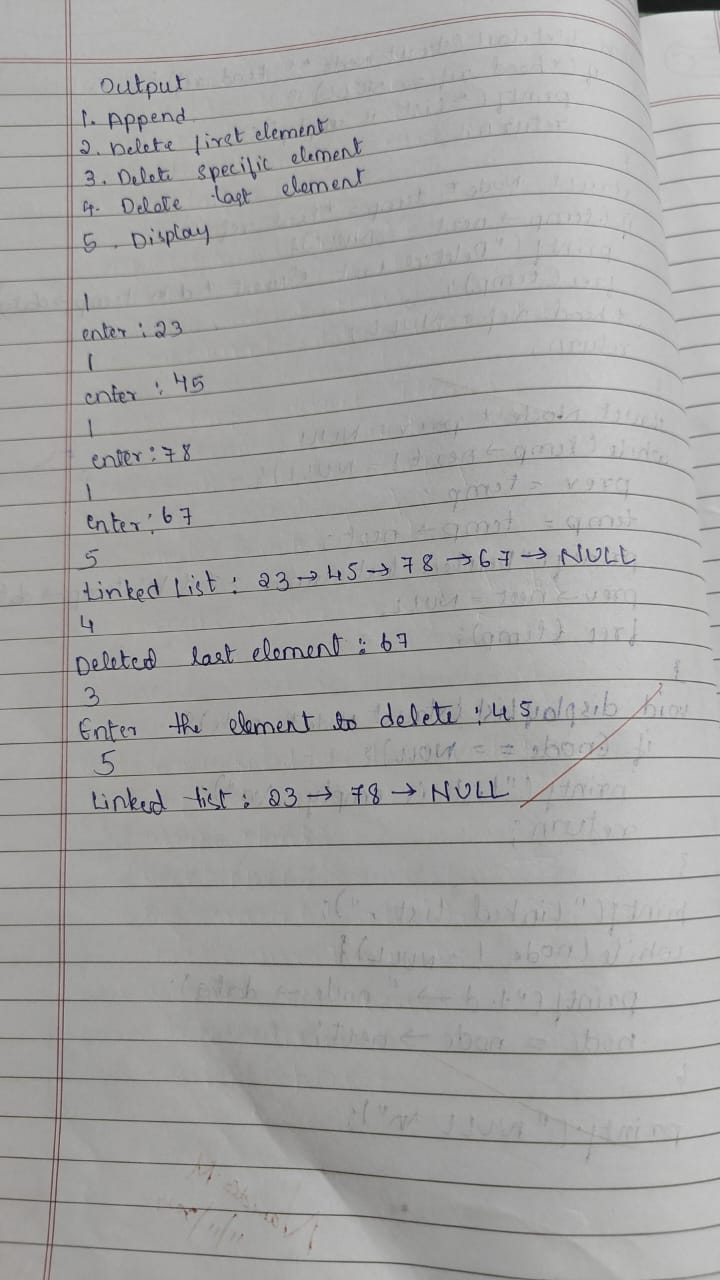 Output
1. Append
2. Delete first element
3. Delete specific element
4. Delete last element
5. Display
1
enter : 23
1
enter : 45
1
enter : 78
1
enter : 67
5
Linked List : 23 → 45 → 78 → 67 → NULL
4
Deleted last element : 67
3
Enter the element to delete : 45
5
Linked list : 23 → 78 → NULL